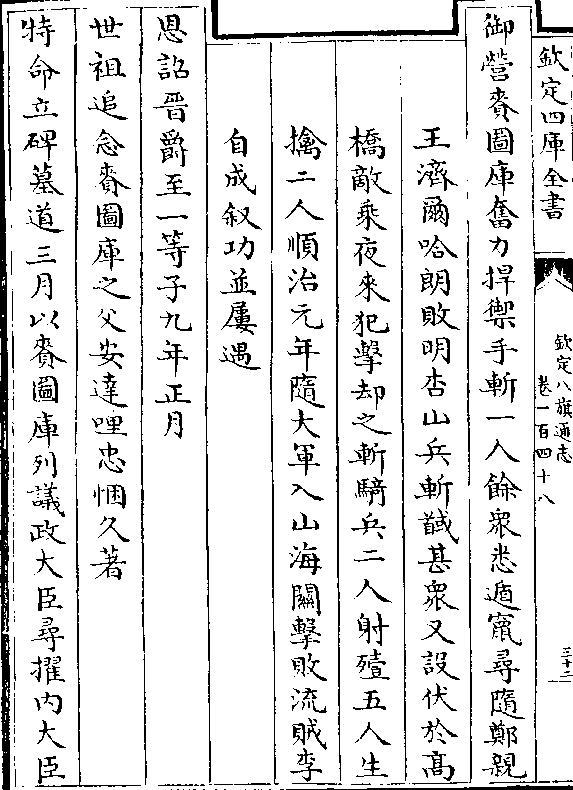 欽定四庫全書
欽定八旗通志
卷一百四十八
三十二
御營賚圖庫奮力捍禦手斬一人餘衆悉遁竄尋隨鄭親
王濟爾哈朗敗明杏山兵斬馘甚衆又設伏於髙
橋敵乘夜來犯擊却之斬騎兵二人射殪五人生
擒二人順治元年隨大軍入山海關擊敗流賊李
自成叙功並屢遇
恩詔晉爵至一等子九年正月
世祖追念賚圖庫之父安達哩忠悃久著
特命立碑墓道三月以賚圖庫列議政大臣尋擢内大臣